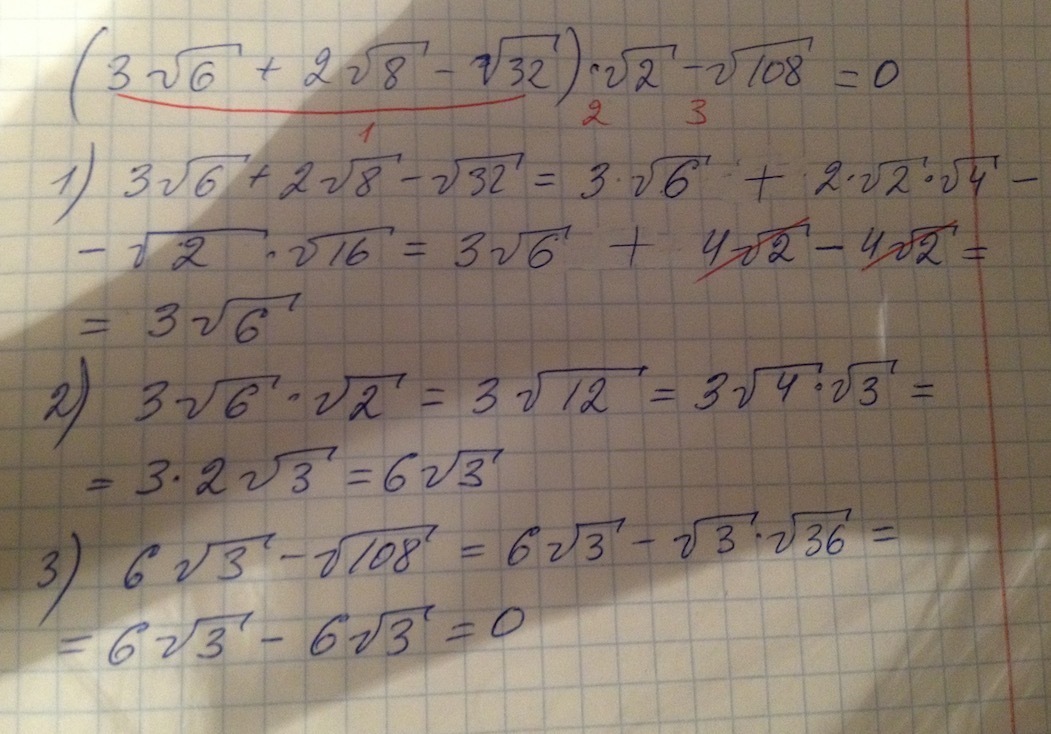 (3√6 + 2√8 - √32)·√2 - √108 = 0
1 2 3
1) 3√6 + 2√8 - √32 = 3·√6 + 2·√2·√4 -
- √2·√16 = 3√6 + 4√2 - 4√2 =
= 3√6
2) 3√6·√2 = 3√12 = 3√4·√3 =
= 3·2√3 = 6√3
3) 6√3 - √108 = 6√3 - √3·√36 =
= 6√3 - 6√3 = 0